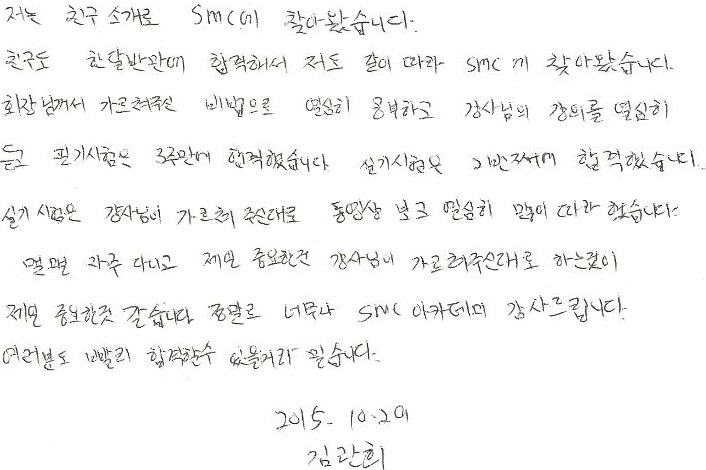 저는 친구 소개로 SMC에 찾아왔습니다.
친구도 한달반만에 합격해서 저도 같이 따라 SMC에 찾아왔습니다.
회장님께서 가르쳐주신 비법으로 열심히 공부하고 강사님의 강의를 열심히
듣고 필기시험은 3주만에 합격했습니다 실기시험은 2번째에 합격했습니다.
실기시험은 강사님이 가르쳐 주신대로 동영상 보고 열심히 많이 따라 했습니다.
자주 다니고 제일 중요한건 강사님이 가르쳐주신대로 하는것이
제일 중요한것 같습니다 정말로 너무나 SMC아카데미 감사드립니다.
여러분도 빨리 합격할수 있을거라 믿습니다.
2015. 10.29
김관희